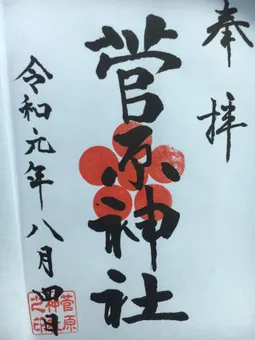 奉拝
菅原神社
令和元年八月四日
菅原
神社
之印